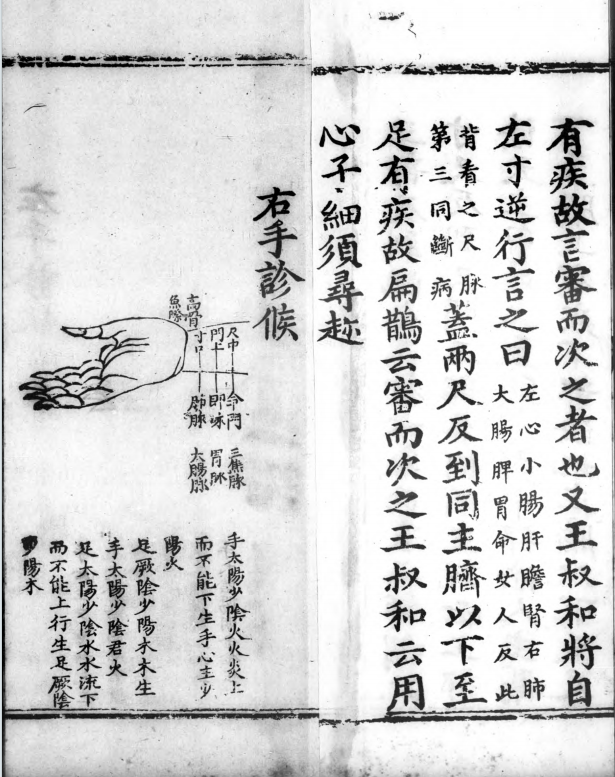 有疾故言審而次之者也又王叔和將自
左寸逆行言之曰
左心小腸肝膽腎右肺
大腸脾胃命女人反此
背看之尺脉
第三同斷病
蓋兩尺反到同主臍以下至
足有疾故扁鵲云審而次之王叔和云用
心子細須尋趂
右手診候
高骨
魚際
尺中
門上
寸口
命門
即
肺脉
三焦脉
胃脉
大腸脉
手太陽少陰火火炎上
而不能下生手心主少
陽火
足厥陰少陽木木生
手太陽少陰君火
足太陽少陰水水流下
而不能上行生足厥陰
少陽木